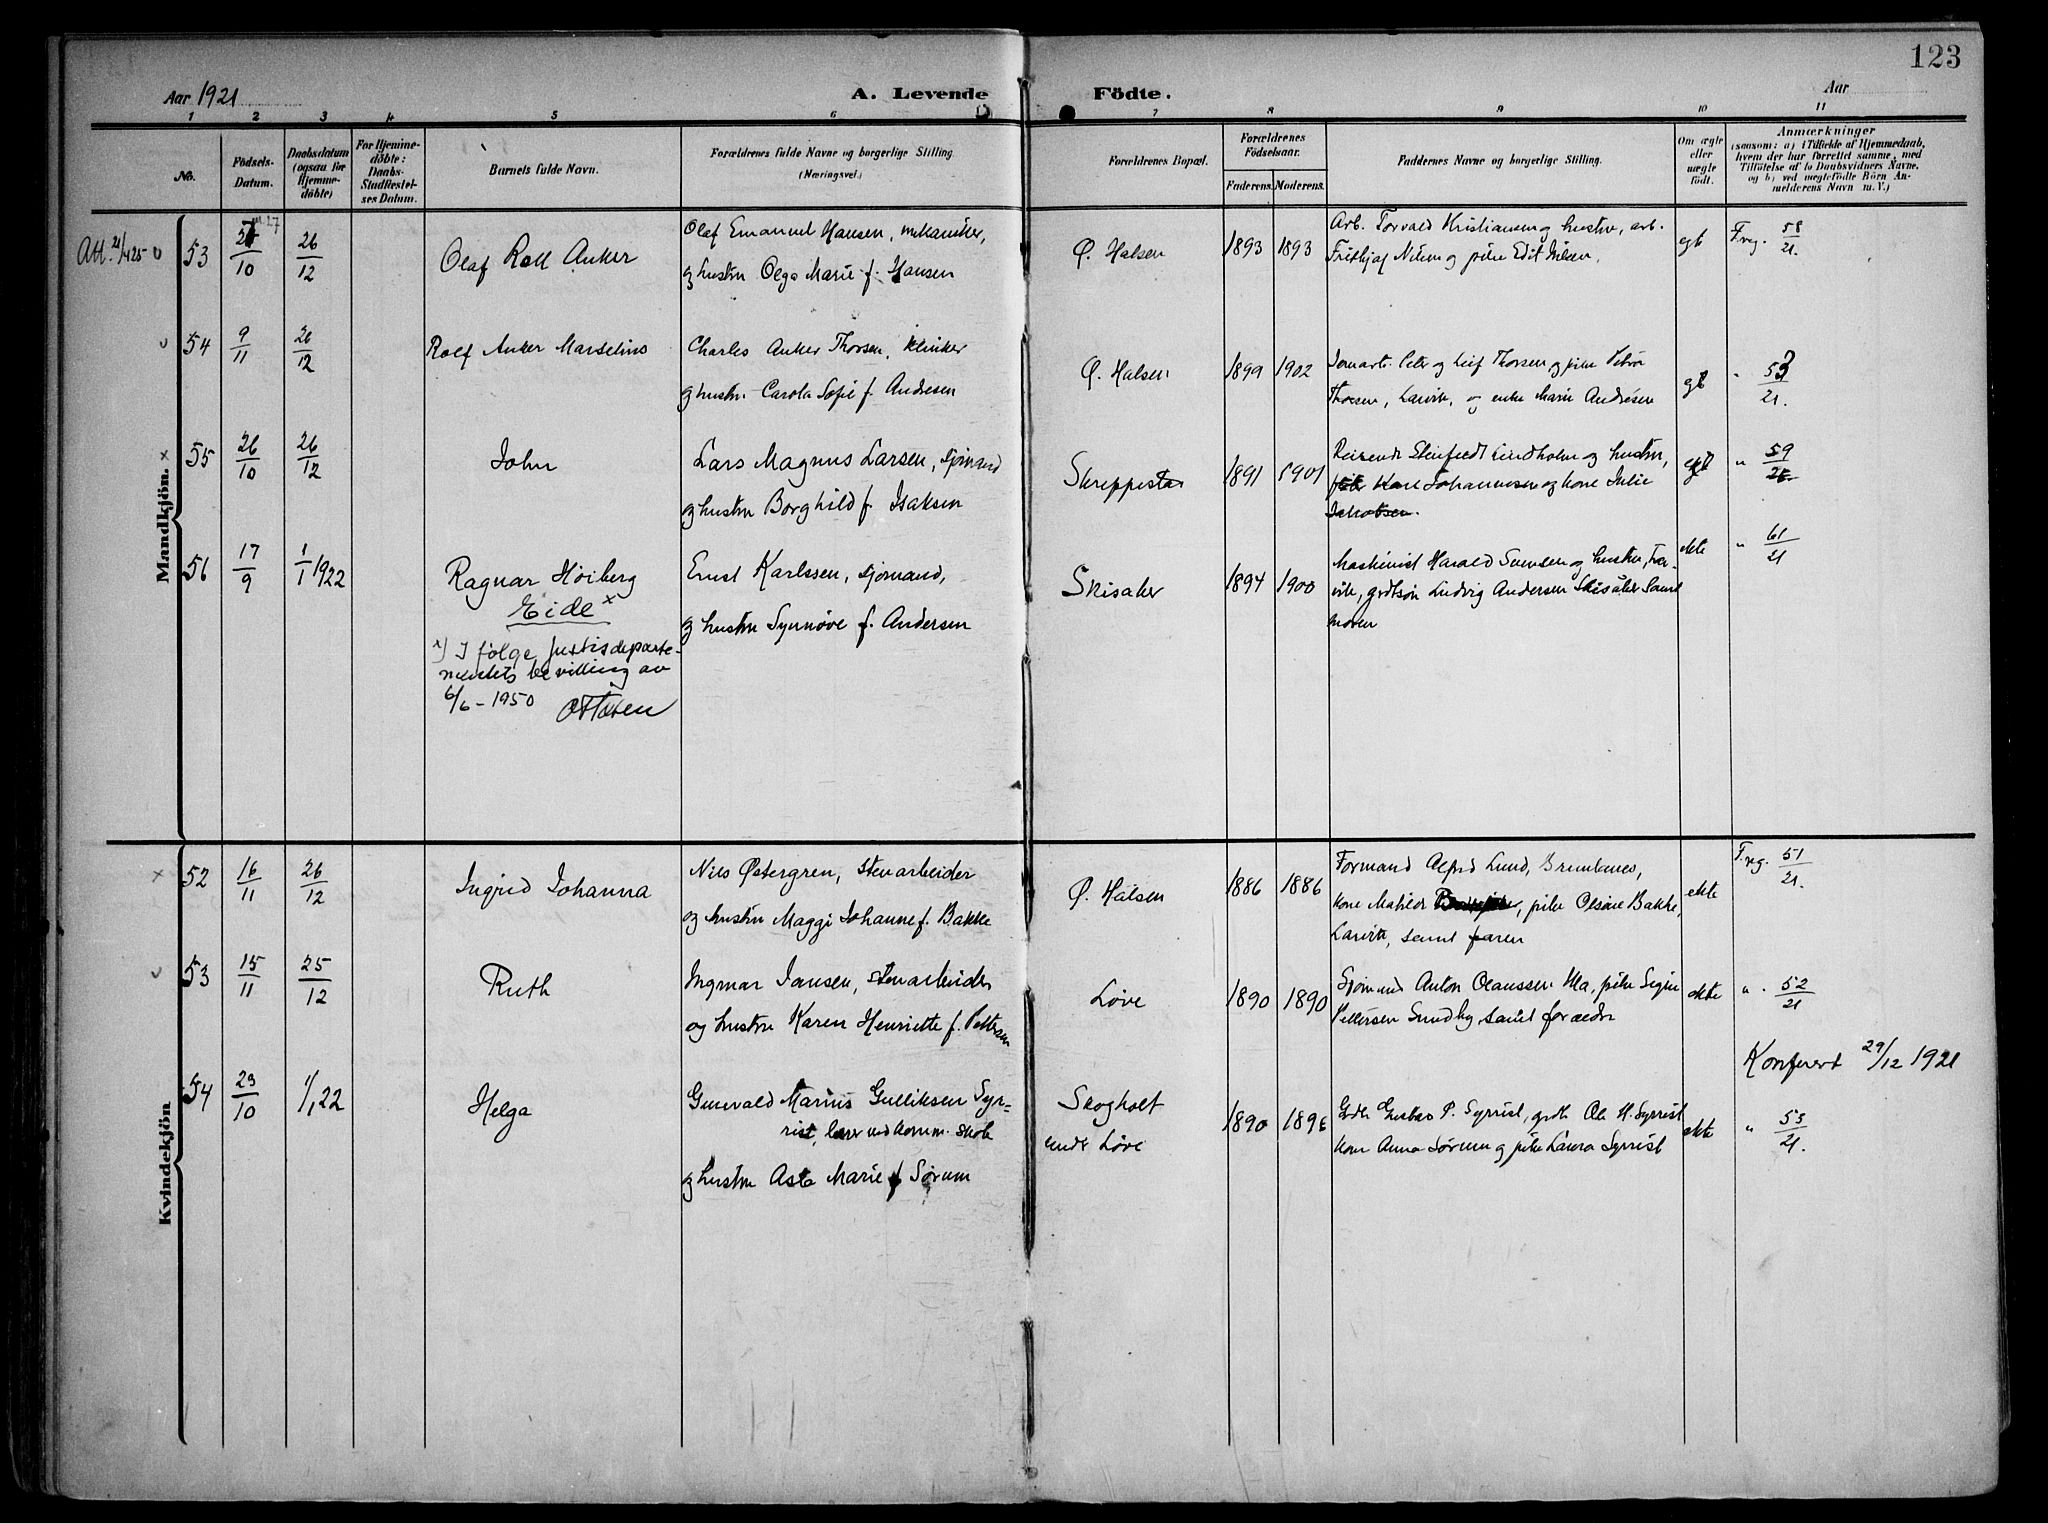 123
Aar 1921
A. Levende
Födte.
Aar
1 2 3 4 5 6 7 8 9 10 11
No.
Födsels-
Datum.
Daabsdatum
(ogsaa for
Hjemme-
döbte)
For Hjemme-
döbte:
Daabs-
Stadfæstel-
ses Datum.
Barnets fulde Navn.
Forældrenes fulde Navne og borgerlige Stilling.
(Næringsvei.)
Forældrenes Bopæl.
Forældrenes
Födselsaar.
Faderens. Moderens.
Faddernes Navne og borgerlige Stilling.
Om ægte
eller
uægte
født.
Anmærkninger
(saasom: a) i Tilfælde af Hjemmedaab,
hvem der har forrettet samme, med
Tilföielse af to Daabsvidners Navne,
og b) ved uægtefödte Börn An-
melderens Navn m. V.)
Mandkjön.
53
10
26/12
Olaf Roll Anker
Olaf Emanuel Hansen, mekaniker,
og hustru Olga Marie f. Hansen
Ø. Halsen
1893 1893
Arb. Torvald Kristiansen og hustru, arb.
Frithjof Nilsen og pike Edit Nilsen.
egt
F.reg. 58/21.
54
9/11
26/12
Rolf Anker Marselius
Charles Anker Thorsen, klinker
og hustru Carola Sofie f. Andresen
Ø. Halsen
1899 1902
Peter og Leif Thorsen og pike
Thorsen, Larvik, og enke Marie Andresen
egt
" 53/21.
x 55
26/10
26/12
John
Lars Magnus Larsen, sjømand
og hustru Borghild f. Isaksen
Skreppestad
1891 1901
Reisende Lindholm og hustru,
Johannessen og kone Julie
Jakobsen.
egt
" 59/21
56
17/9
1/1 1922
Ragnar Høiberg
Eide x
x) I følge Justisdeparte-
mentets bevilling av
6/6 - 1950
Ernst Karlssen, sjømand,
og hustru Synnøve f. Andersen
Skisaker
1894 1900
Maskinist Harald Svensen og hustru, Lar-
vik, grdtsøn Ludvig Andersen Skisaker samt
moren
ekte
" 61/21
Kvindekjön
x 52
16/11
26/12
Ingrid Johanna
Nils Østergren, stenarbeider
og hustru Maggi Johanne f. Bakke
Ø. Halsen
1886 1886
Formand Alfred Lund,
kone Matilde , pike Bakke,
Larvik, samt faren
ekte
F.reg. 51/21.
53
15/11
25/12
Ruth
Ingmar Jansen, stenarbeider
og hustru Karen Henriette f. Pettersen
Løve
1890 1890
Sjømand Anton Olaussen Ula, pike Signe
Pettersen Sundby, samt forældre
ekte
" 52/21
Konferert 29/12 1921
54
23/10
1/1 22
Helga
Gunvald Marius Gulliksen Syr-
rist, lærer ved komm. skole
og hustru Asta Marie f Sørum
Skogholt
under Løve
1890
Gdb. Gustav P. Syrrist, grdb. Ole H. Syrrist
kone Anna Sørum og pike Laura Syrrist
ekte
" 53/21.